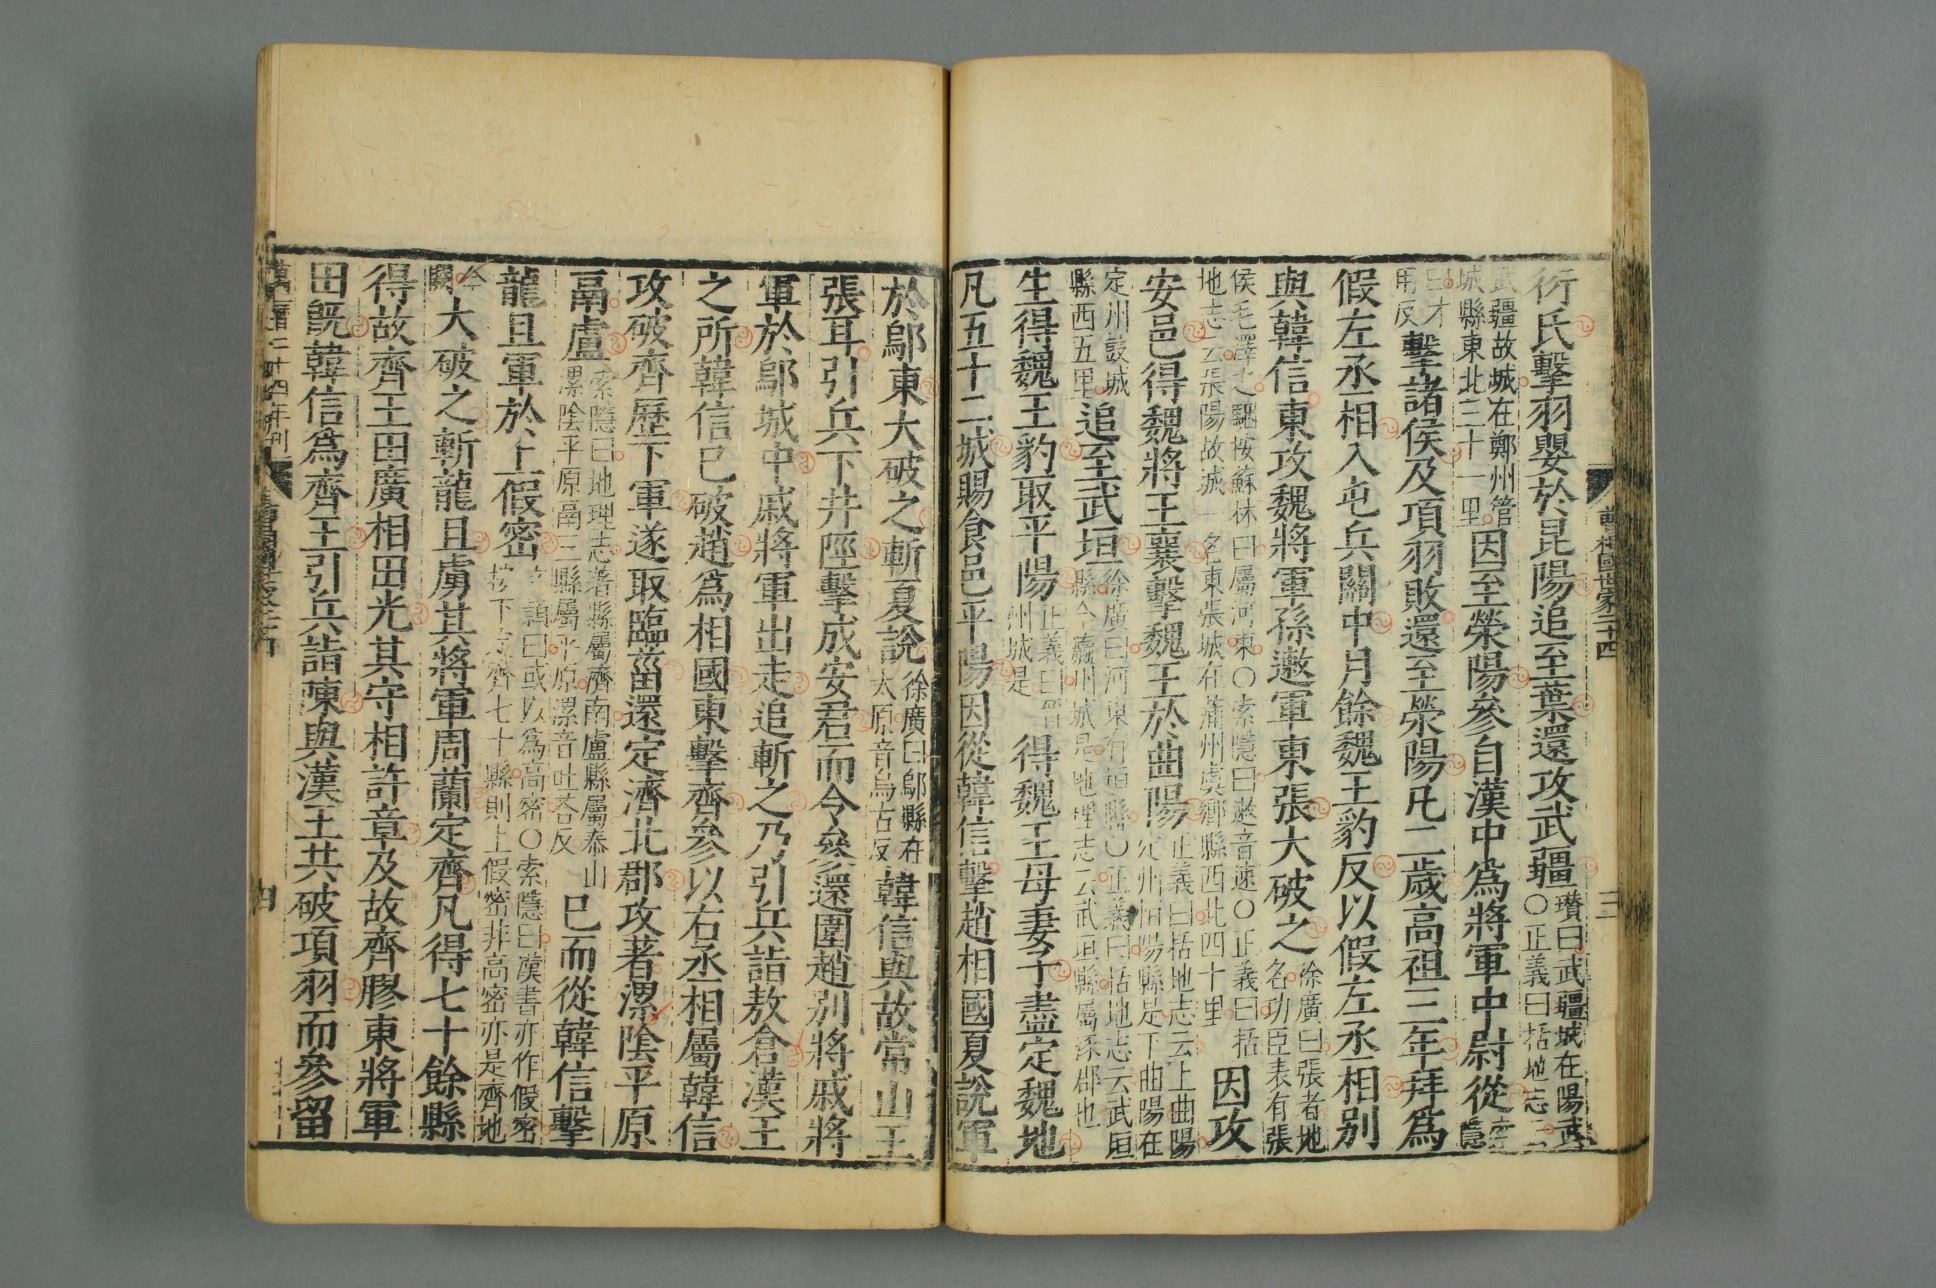 衍氏擊羽嬰於昆陽追至葉還攻武疆瓚曰武疆城在陽武○正義曰括地志云
武疆故城在鄭州管城縣東北三十一里因至滎陽參自漢中爲將軍中尉從
擊諸侯及項羽敗還至滎陽凡二歲高祖三年拜爲
假左丞相入屯兵關中月餘魏王豹反以假左丞相别
與韓信東攻魏將軍孫遬軍東張大破之徐廣曰張者地名功臣表有張
侯毛澤之騶按蘇林曰屬河東○索隱曰遬音速○正義曰括地志云張陽故城一名東張城在蒲州虞鄉縣西北四十里因攻
安邑得魏將王襄擊魏王於曲陽正義曰括地志云上曲陽定州恒陽縣是下曲陽在
定州鼓城縣西五里追至武垣徐廣曰河東有垣縣○正義曰括地志云武垣縣今瀛州城是地理志云武垣縣屬涿郡也
生得魏王豹取平陽正義曰晉州城是得魏王母妻子盡定魏地
凡五十二城賜食邑平陽因從韓信擊趙相國夏說軍
於鄔東大破之斬夏說徐廣曰鄔縣在太原音烏古反韓信與故常山王
張耳引兵下井陘擊成安君而令參還圍趙别將戚將
軍於鄔城中戚將軍出走追斬之乃引兵詣敖倉漢王
之所韓信已破趙爲相國東擊齊參以右丞相屬韓信
攻破齊歷下軍遂取臨菑還定濟北郡攻著漯陰平原
鬲盧索隱曰地理志著縣屬濟南盧縣屬泰山漯陰平原鬲三縣屬平原漯音吐荅反已而從韓信擊
龍且軍於上假密文穎曰或以爲高密○索隱曰漢書亦作假密按下定齊七十縣則上假密非高密亦是齊地
今闕大破之斬龍且虜其將軍周蘭定齊凡得七十餘縣
得故齊王田廣相田光其守相許章及故齊膠東將軍
田旣韓信爲齊王引兵詣陳與漢王共破項羽而參留
萬曆二十四年刊
四